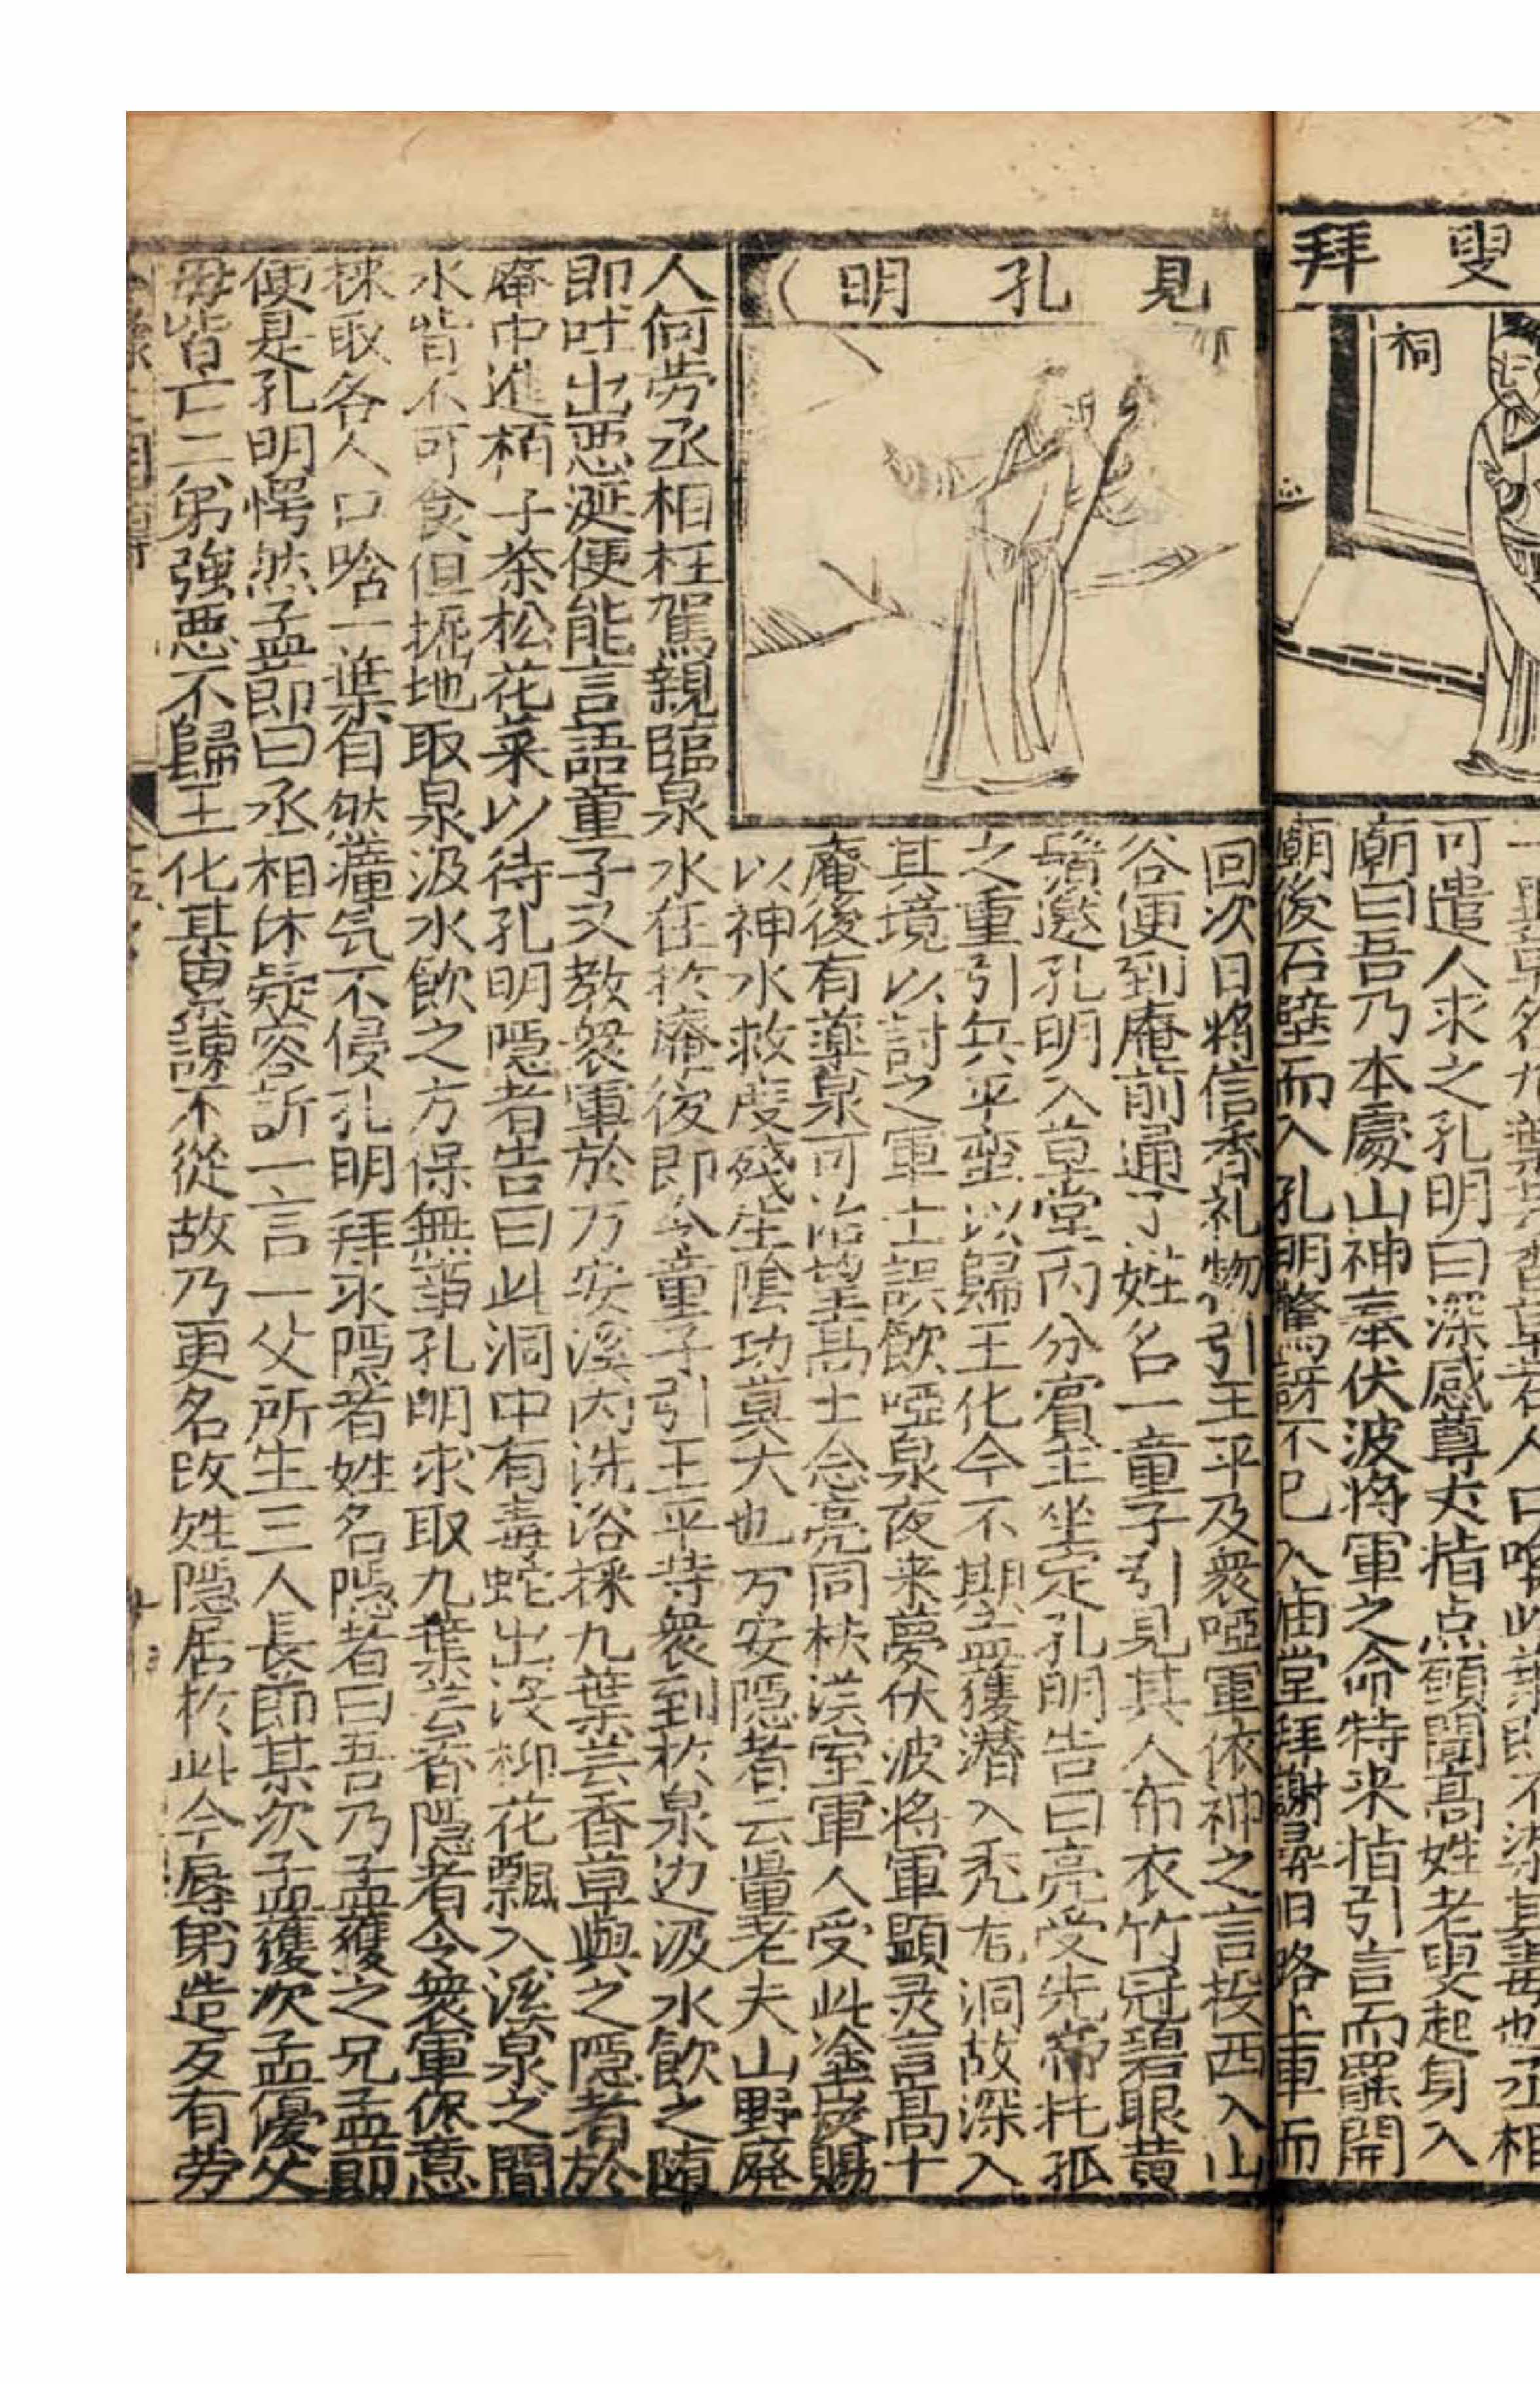 叟 拜
祠
可遣人求之孔明曰深感尊丈指点頭聞高姓老叟起身入
廟曰吾乃本處山神奉伏波將軍之命特来指引言而罷開
廟後石壁而入孔明驚訝不已入庙堂拜謝尋旧路上車而
見 孔 明
回次日将信香礼物引王平及衆啞軍依神之言投西入山
谷便到庵前通了姓名一童子引見其人布衣竹冠碧眼黄
鬚邀孔明入草堂内分賓主坐定孔明告曰亮受先帝托孤
之重引兵平蛮以歸王化今不期孟獲潜入秃龙洞故深入
其境以討之軍士誤飲啞泉夜来夢伏波将軍顯灵言高士
庵後有薬泉可治望高士念亮同扶漢室軍人受此塗炭賜
以神水救度残生陰功莫大也万安隠者云量老夫山野廢
人何劳丞相枉駕親臨泉水在於庵後即令童子引王平待衆到於泉边汲水飲之随
即吐出悪涎便能言語童子又教衆軍於万安溪内洗浴採九葉芸香草與之隠者於
庵中進栢子茶松花菜以待孔明隠者告曰此洞中有毒蛇出没柳花飄入溪泉之間
水皆不可食但掘地取泉汲水飲之方保無事孔明求取九葉芸香隠者令衆軍你意
採取各人口啥一葉自然瘴気不侵孔明拜求隠者姓名隠者曰吾乃孟獲之兄孟節
便是孔明愕然孟節曰丞相休疑容訴一言一父所生三人長節某次孟獲次孟優父
母皆亡二弟強悪不歸王化某累諌不從故乃更名改姓隠居於此今辱弟造反有劳